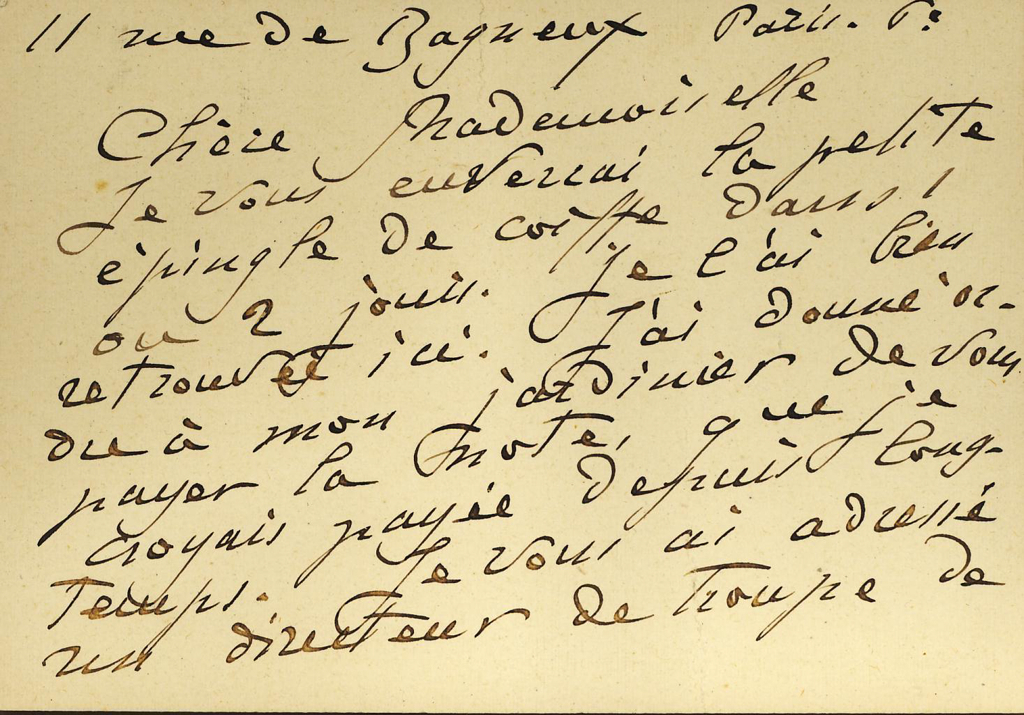 11 rue de Bagneux Paris. 6e
Chère Mademoiselle
Je vous enverrai la petite
épingle de coiffe dans 1
ou 2 jours. Je l'ai bien
retrouvée ici. J'ai donné or-
dre à mon jardinier de vous
payer la note, que je
croyais payée depuis long-
temps. Je vous ai adressé
un directeur de troupe de